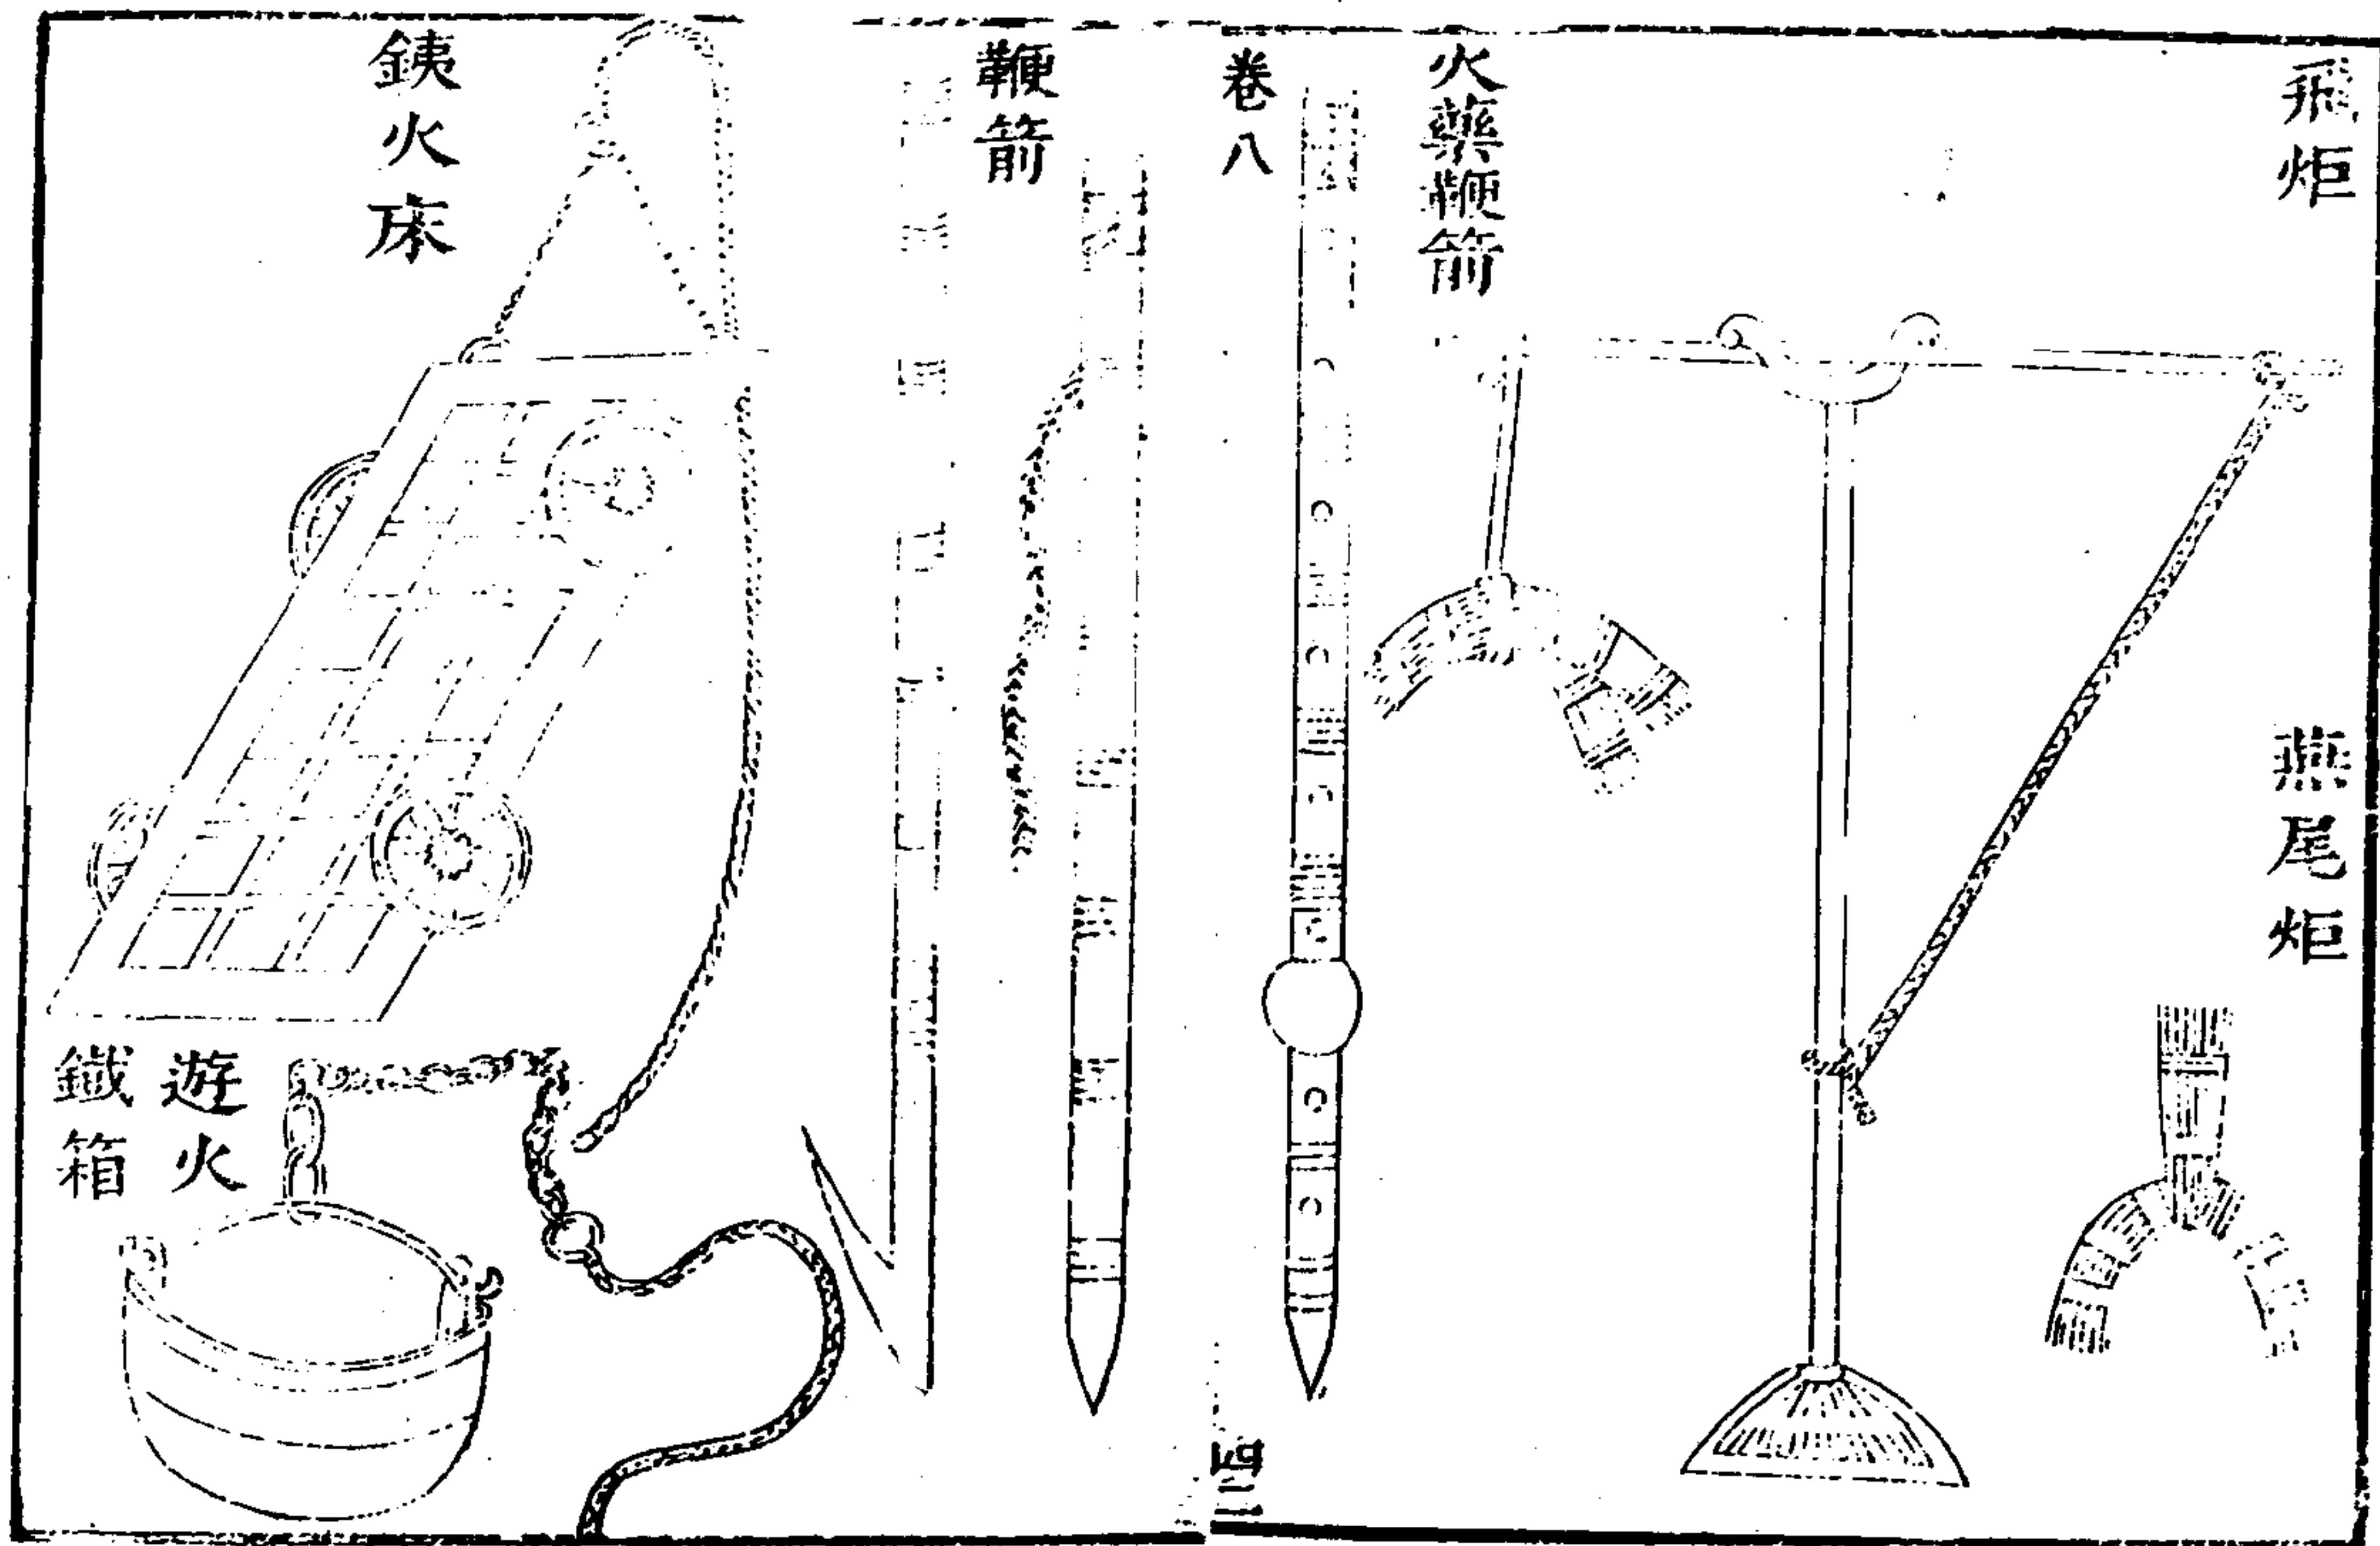 飛炬
燕尾炬
火藥鞭箭
卷八
四三
鞭箭
銕火床
遊火
鐵箱